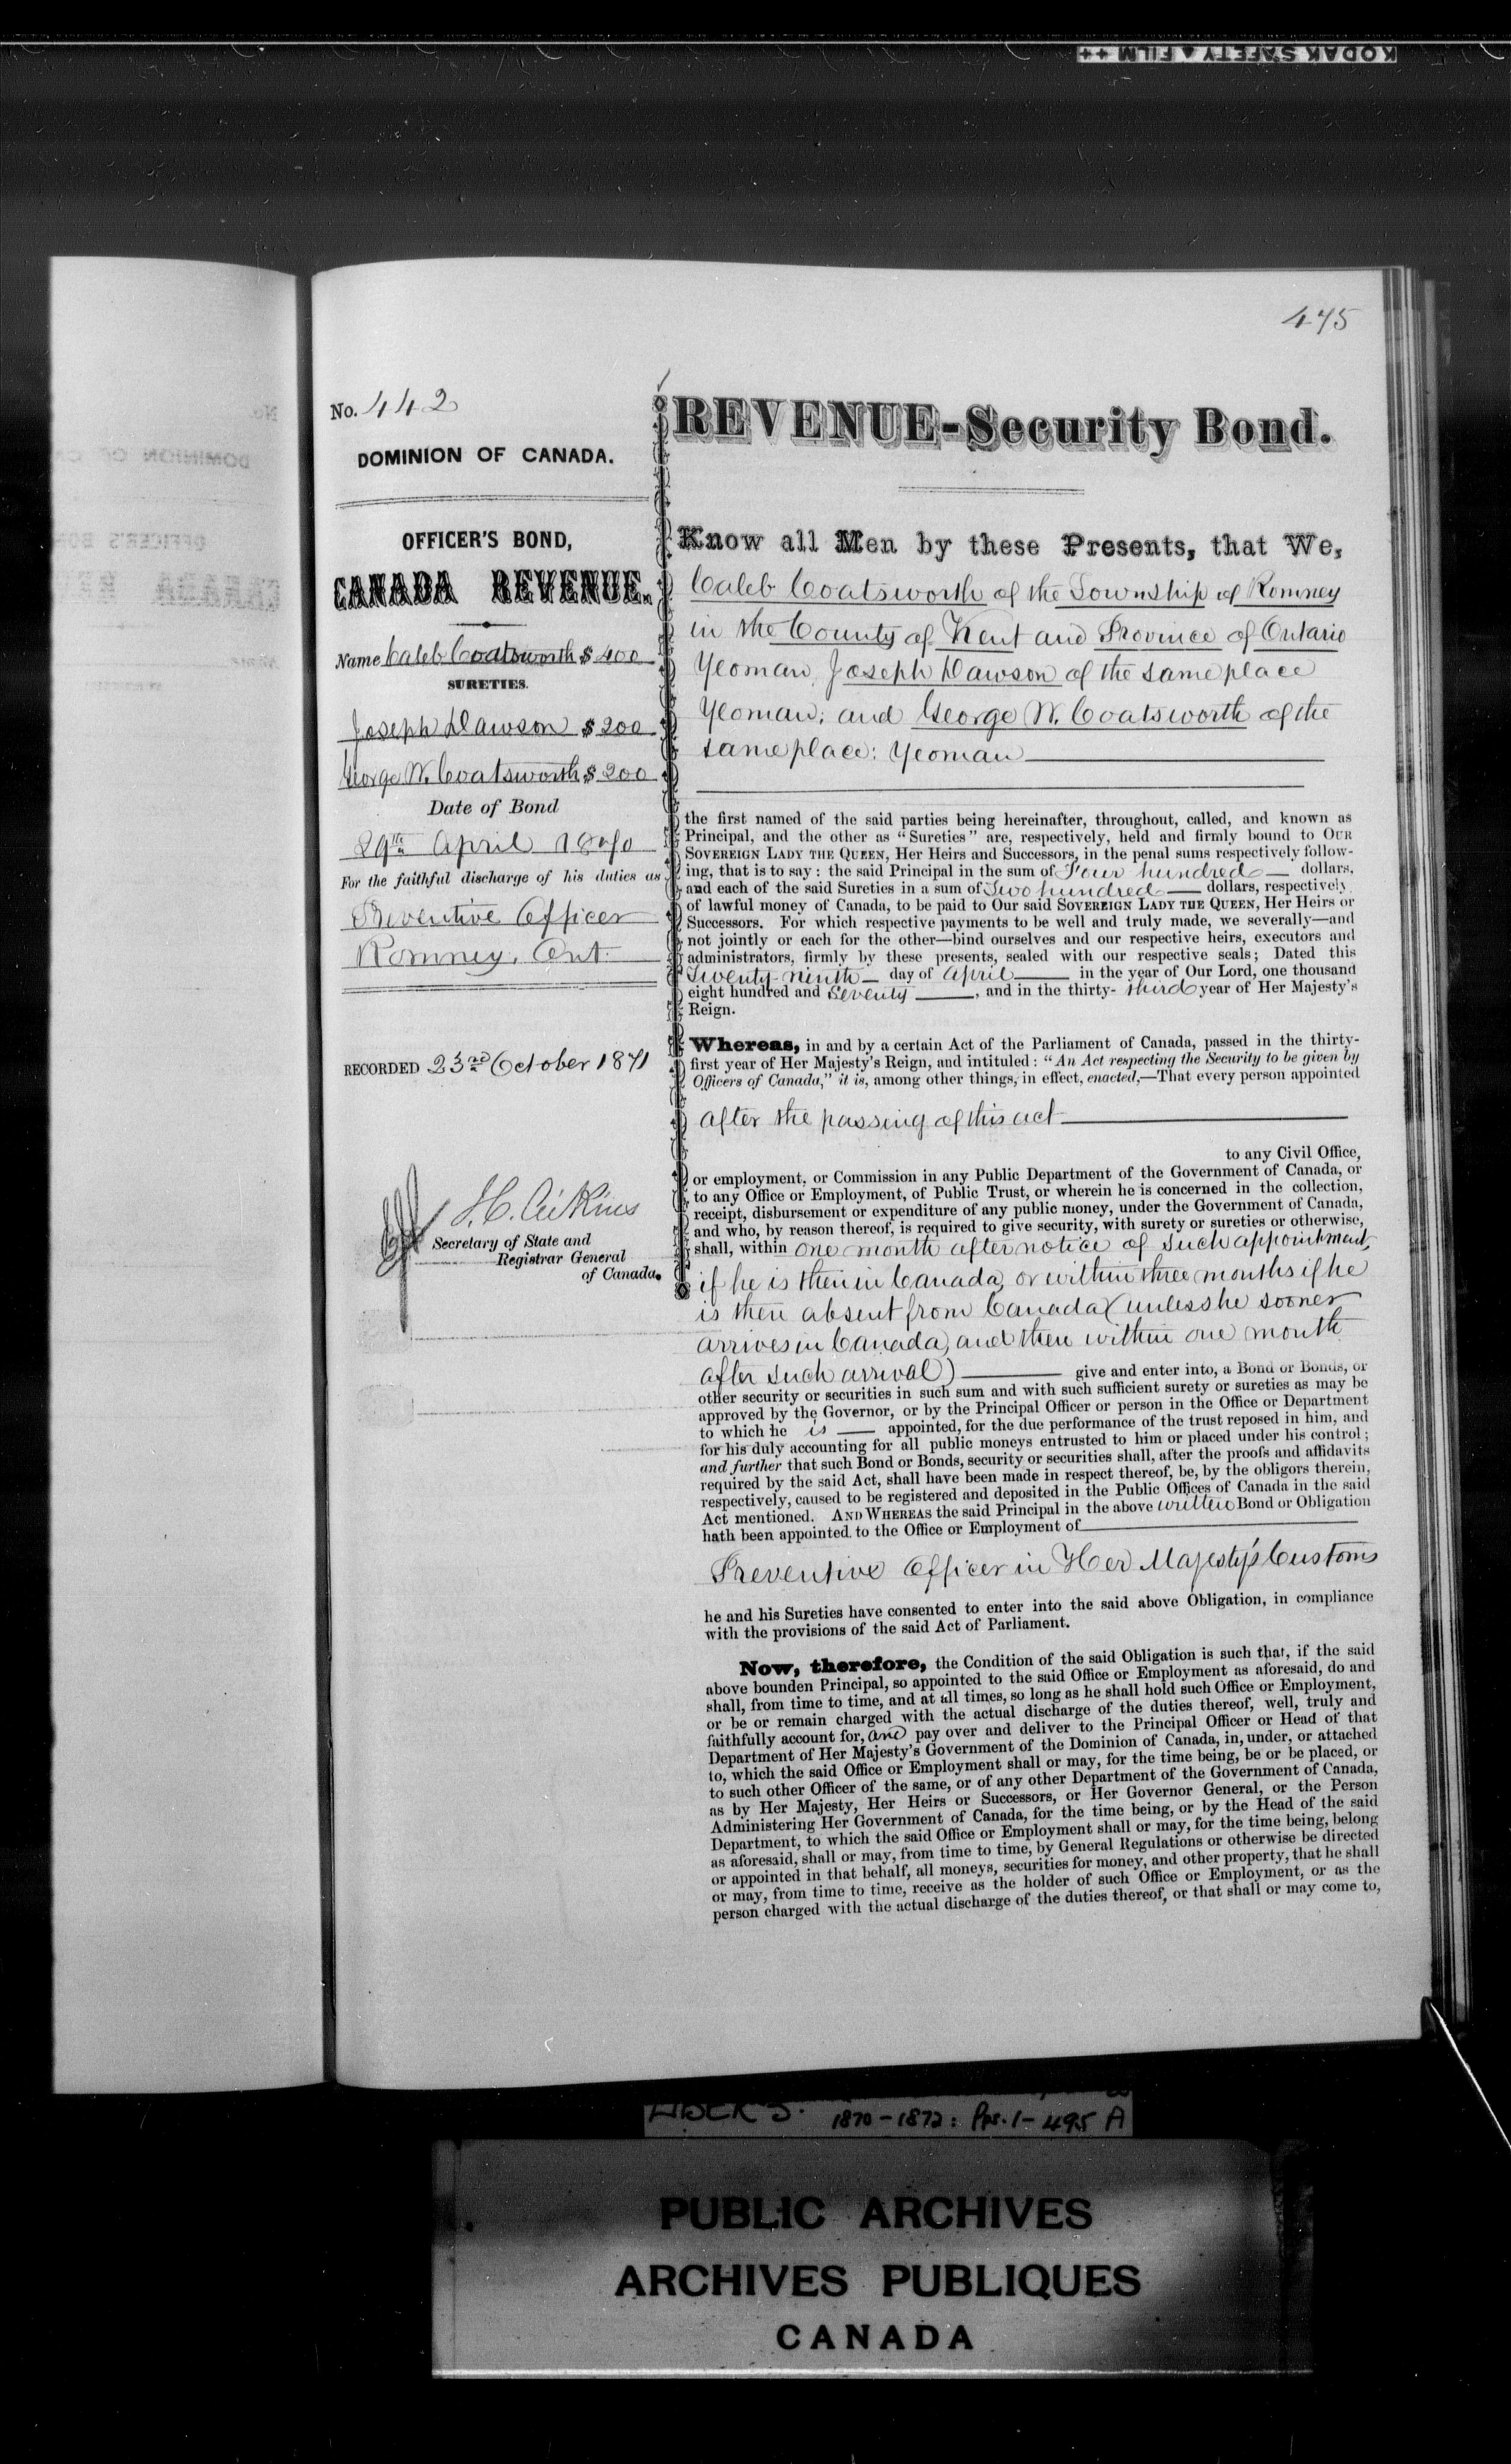 KODAK SAFETY FILM ++
475
No. 442
DOMINION OF CANADA.
OFFICER'S BOND,
CANADA REVENUE.
Name Caleb Coatsworth $ 400
SURETIES.
Joseph Dawson $ 200
George W. Coatsworth $ 200
Date of Bond
29th April 1870
For the faithful discharge of his duties as
Preventive Officer
Romney, Ont.
RECORDED 23rd October 1871
J.C. Aikins
Secretary of State and
Registrar General
of Canada.
REVENUE-Security Bond.
Know all Men by these Presents, that We,
Caleb Coatsworth of the Township of Romney
in the County of Kent and Province of Ontario
Yeoman, Joseph Dawson of the same place
Yeoman; and George W. Coatsworth of the
same place: Yeoman
the first named of the said parties being hereinafter, throughout, called, and known as
Principal, and the other as "Sureties" are, respectively, held and firmly bound to OUR
SOVEREIGN LADY THE QUEEN, Her Heirs and Successors, in the penal sums respectively follow-
ing, that is to say: the said Principal in the sum of Four hundred — dollars,
and each of the said Sureties in a sum of Two hundred — dollars, respectively
of lawful money of Canada, to be paid to Our said SOVEREIGN LADY THE QUEEN, Her Heirs or
Successors. For which respective payments to be well and truly made, we severally—and
not jointly or each for the other—bind ourselves and our respective heirs, executors and
administrators, firmly by these presents, sealed with our respective seals; Dated this
Twenty-ninth — day of April — in the year of Our Lord, one thousand
eight hundred and Seventy —, and in the thirty- third year of Her Majesty's
Reign.
Whereas, in and by a certain Act of the Parliament of Canada, passed in the thirty-
first year of Her Majesty's Reign, and intituled: "An Act respecting the Security to be given by
Officers of Canada," it is, among other things, in effect, enacted,—That every person appointed
after the passing of this act
to any Civil Office,
or employment, or Commission in any Public Department of the Government of Canada, or
to any Office or Employment, of Public Trust, or wherein he is concerned in the collection,
receipt, disbursement or expenditure of any public money, under the Government of Canada,
and who, by reason thereof, is required to give security, with surety or sureties or otherwise,
shall, within one month after notice of such appointment,
if he is then in Canada, or within three months if he
is then absent from Canada (unless he sooner
arrives in Canada, and then within one month
after such arrival) — give and enter into, a Bond or Bonds, or
other security or securities in such sum and with such sufficient surety or sureties as may be
approved by the Governor, or by the Principal Officer or person in the Office or Department
to which he is — appointed, for the due performance of the trust reposed in him, and
for his duly accounting for all public moneys entrusted to him or placed under his control;
and further that such Bond or Bonds, security or securities shall, after the proofs and affidavits
required by the said Act, shall have been made in respect thereof, be, by the obligors therein,
respectively, caused to be registered and deposited in the Public Offices of Canada in the said
Act mentioned. AND WHEREAS the said Principal in the above written Bond or Obligation
hath been appointed to the Office or Employment of
Preventive Officer in Her Majesty's Customs
he and his Sureties have consented to enter into the said above Obligation, in compliance
with the provisions of the said Act of Parliament.
Now, therefore, the Condition of the said Obligation is such that, if the said
above bounden Principal, so appointed to the said Office or Employment as aforesaid, do and
shall, from time to time, and at all times, so long as he shall hold such Office or Employment,
or be or remain charged with the actual discharge of the duties thereof, well, truly and
faithfully account for, and pay over and deliver to the Principal Officer or Head of that
Department of Her Majesty's Government of the Dominion of Canada, in, under, or attached
to, which the said Office or Employment shall or may, for the time being, be or be placed, or
to such other Officer of the same, or of any other Department of the Government of Canada,
as by Her Majesty, Her Heirs or Successors, or Her Governor General, or the Person
Administering Her Government of Canada, for the time being, or by the Head of the said
Department, to which the said Office or Employment shall or may, for the time being, belong
as aforesaid, shall or may, from time to time, by General Regulations or otherwise be directed
or appointed in that behalf, all moneys, securities for money, and other property, that he shall
or may, from time to time, receive as the holder of such Office or Employment, or as the
person charged with the actual discharge of the duties thereof, or that shall or may come to,
LIBER 5. 1870-1872: Pps. 1-495 A
PUBLIC ARCHIVES
ARCHIVES PUBLIQUES
CANADA